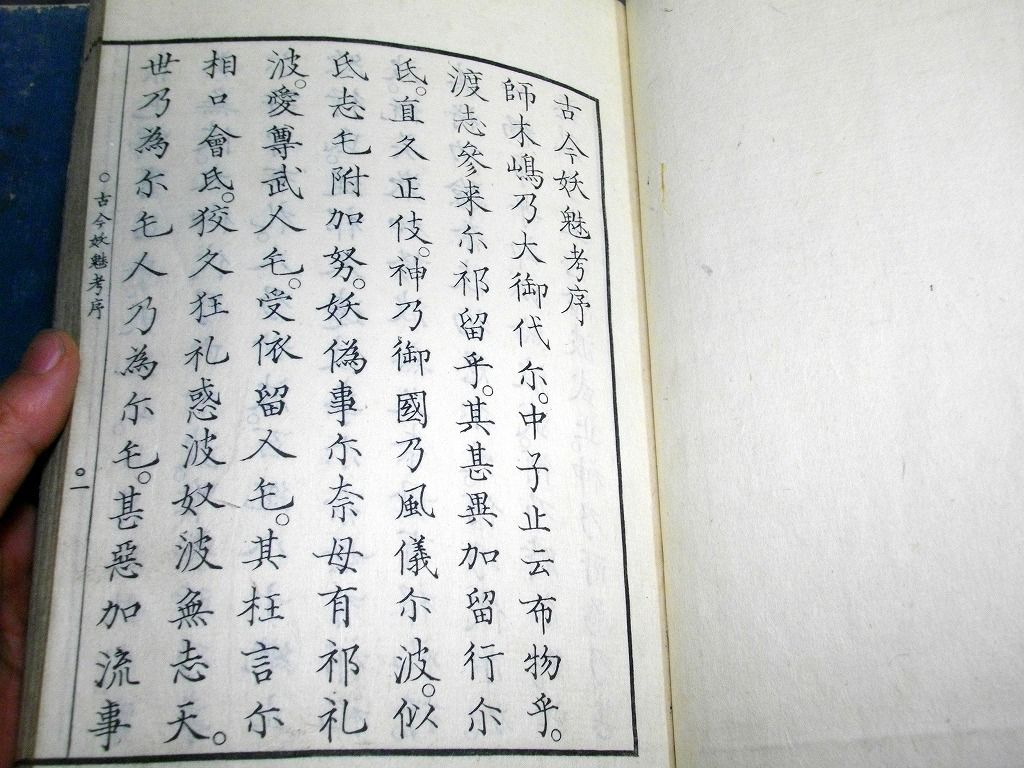 古今妖魅考序
師木嶋乃大御代尓。中子止云布物乎。
渡志參来尓祁留乎。其甚異加留行尓
氐。直久正伎。神乃御國乃風儀尓波。似
氐志毛附加努。妖偽事尓奈母有祁礼
波。愛尊武人毛。受依留人毛。其枉言尓
相口會氐。狡久狂礼惑波奴波無志天。
世乃為尓毛人乃為尓毛。甚惡加流事
○古今妖魅考序 ○一